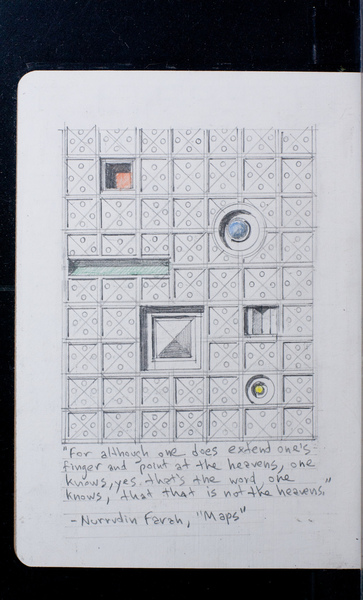 "For although one does extend one's
finger and point at the heavens, one
knows, yes that's the word, one
knows, that that is not the heavens."
- Nurrudin Farah, "Maps"